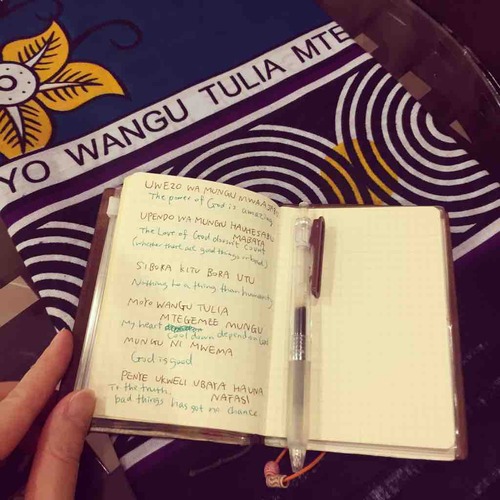 YO WANGU TULIA MTE
O
UWEZO WA MUNGU MWAAJABU
The power of God is amazing
UPENDO WA MUNGU HAUHESABU
MABAYA
The Love of God doesn't count
(whether there are good things or bad)
SI BORA KITU BORA UTU
Nothing be a thing than humanity
MOYO WANGU TULIA
MTEGEMEE MUNGU
My heart cool down depend on God
MUNGU NI MWEMA
God is good
PENYE UKWELI UBAYA HAUNA
NAFASI
To the truth,
bad things has got no chance